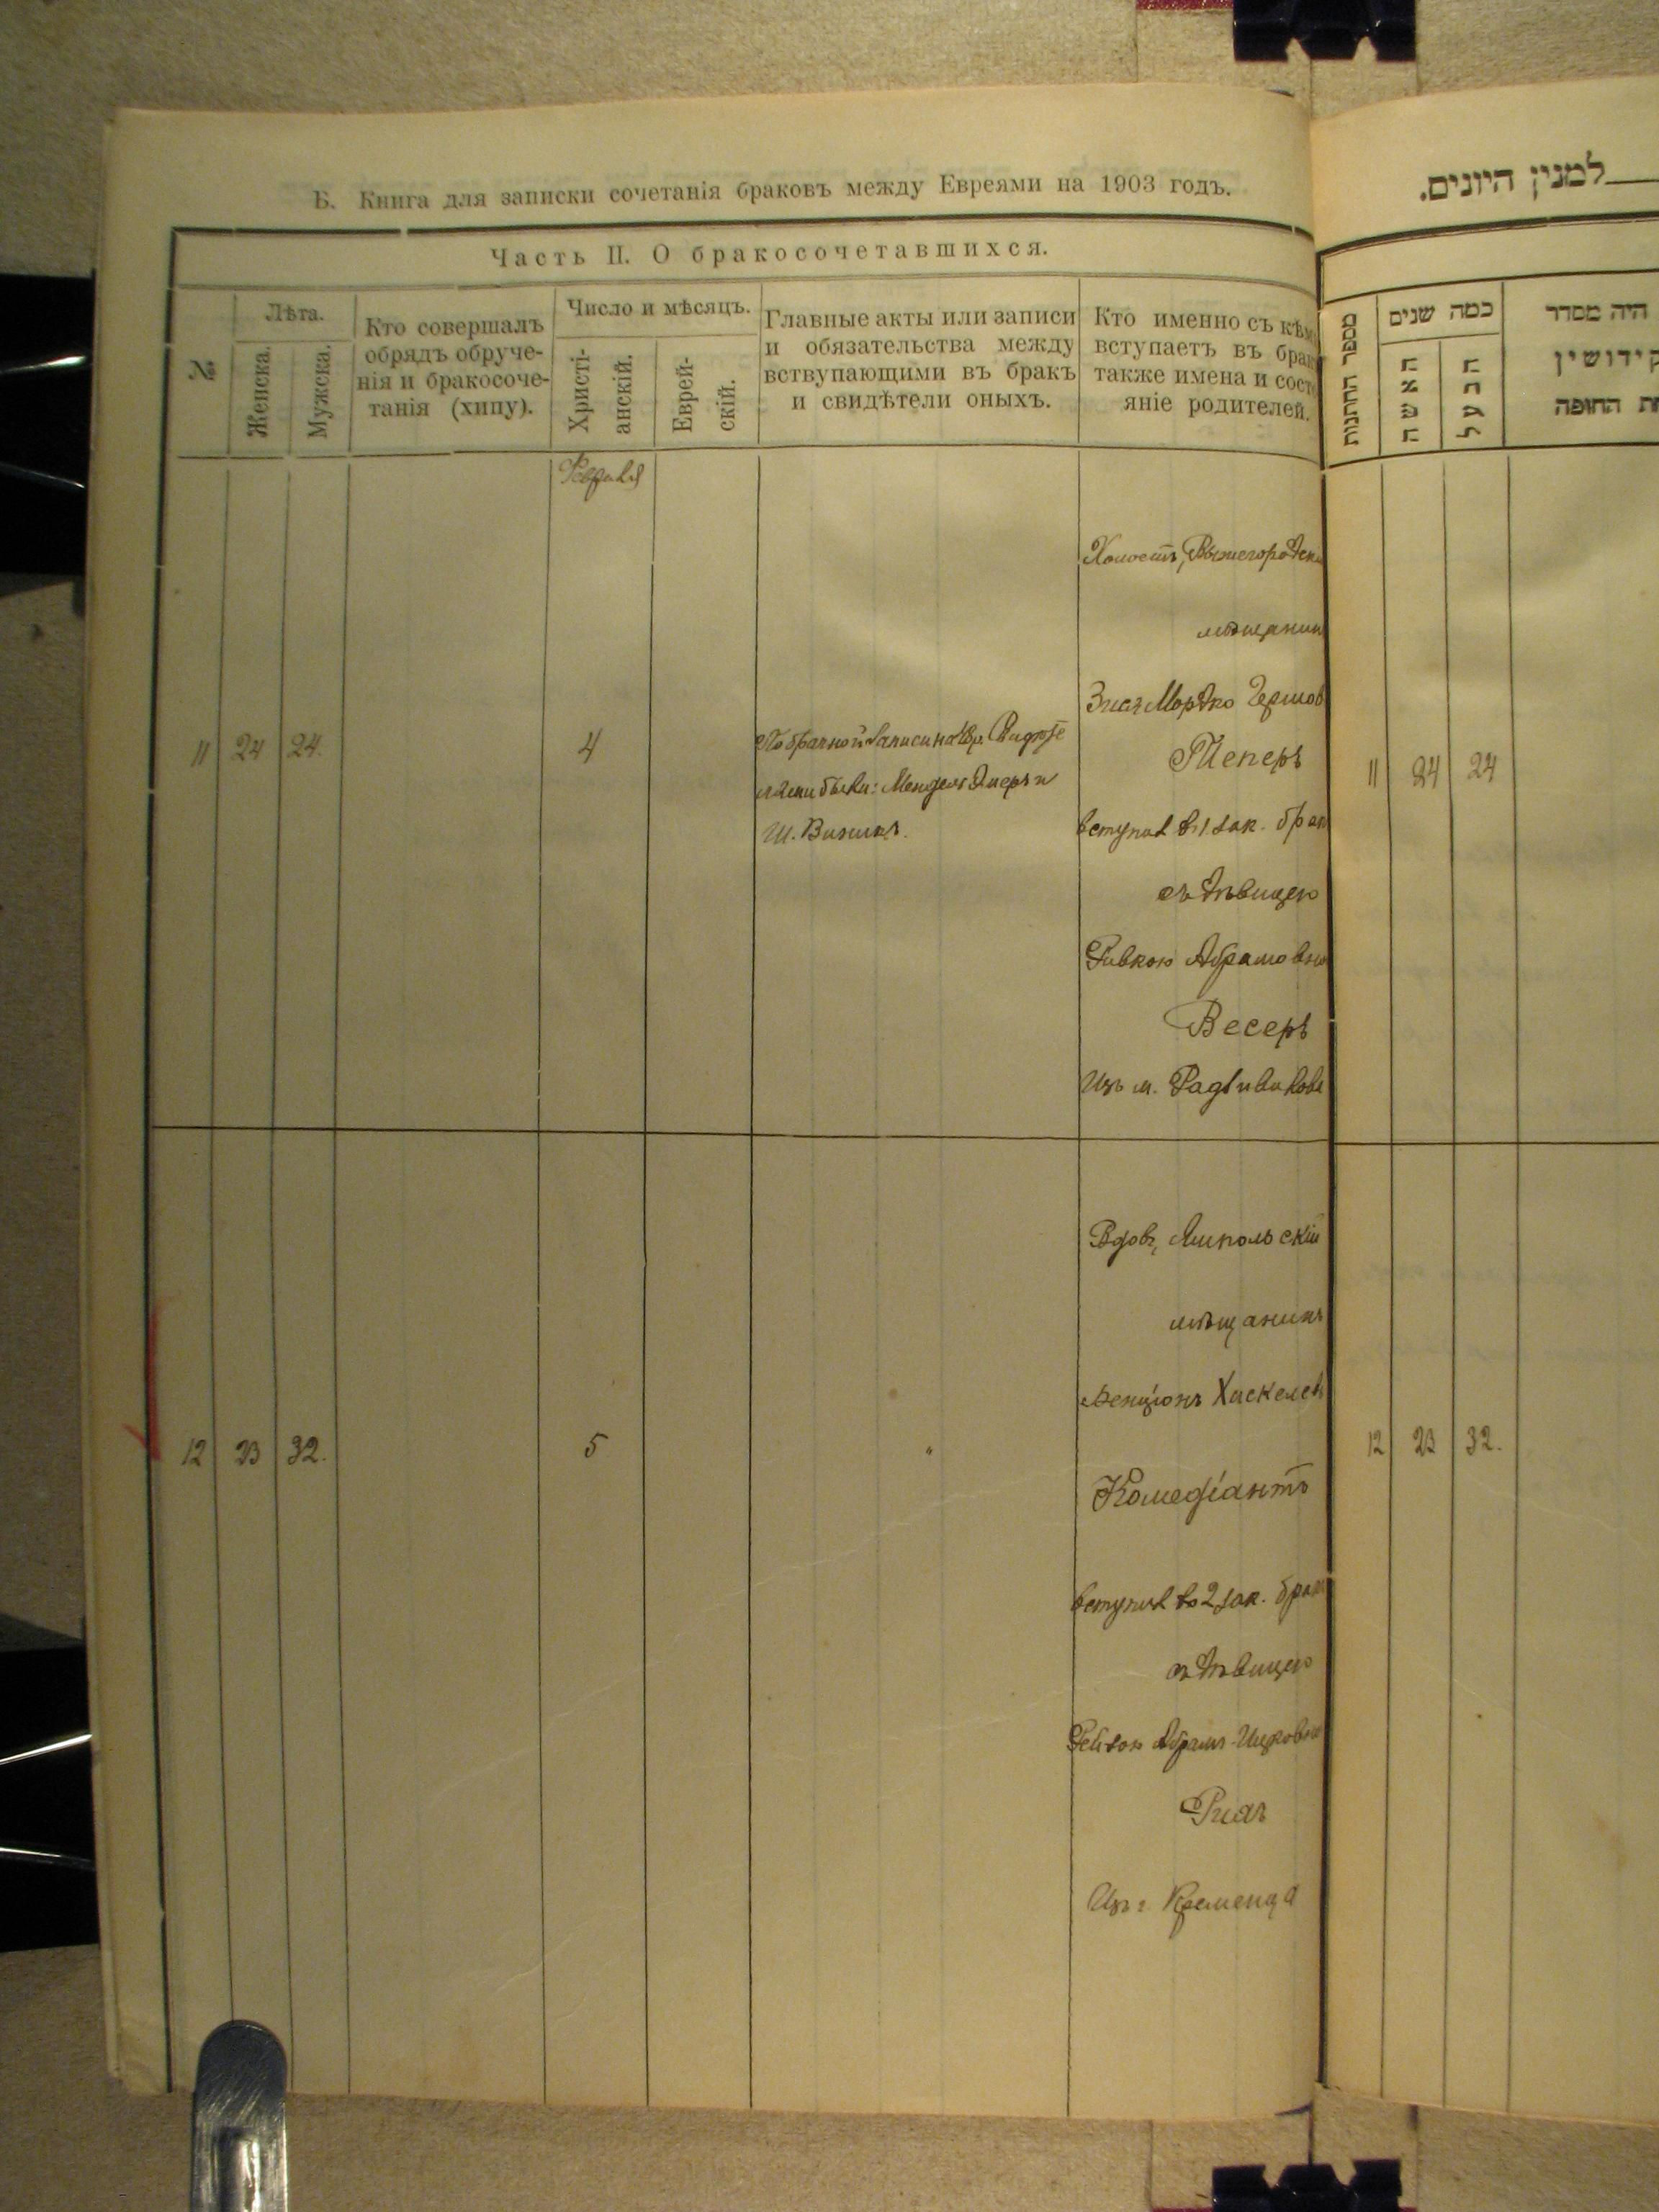 Б. Книга для записки сочетанія браковъ между Евреями на 1903 годъ.
Часть II. О бракосочетавшихся.
№
Лѣта.
Женска.
Мужска.
Кто совершалъ
обрядъ обруче-
нія и бракосоче-
танія (хипу).
Число и мѣсяцъ.
Христі-
анскій.
Еврей-
скій.
Главные акты или записи
и обязательства между
вствупающими въ бракъ
и свидѣтели оныхъ.
Кто именно съ кѣмъ
вступаетъ въ бракъ
также имена и состо
яніе родителей.
Февраля
11 24 24.
4
По брачной записи на 48 р.
были: Мендель и
Ш.
Холостъ,
мѣщанин
Мордко Гершов
Теперъ
вступил въ 1 зак. брак
съ дѣвицею
Ривкою Абрамовною
Весеръ
Изъ м. Радзивилова
12 23 32.
5
"
Вдовъ, Ямпольскій
мѣщанинъ
Бенціонъ Хаскелев
Комедіантъ
вступил во 2 зак. брак
съ дѣвицею
Рейзою Абрамъ-Ицковною
Из г. Кременца
למנין היונים.
מספר החתנות
כמה שנים
האשה
הבעל
היה מסדר
קידושין
החופה
11 24 24
12 23 32.